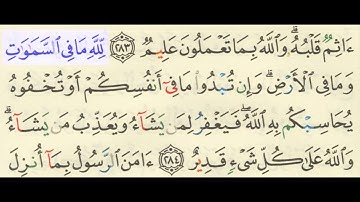 ءَاثِمٌ قَلْبُهُۥ ۗ وَٱللَّهُ بِمَا تَعْمَلُونَ عَلِيمٌ ٢٨٣ لِّلَّهِ مَا فِى ٱلسَّمَٰوَٰتِ
وَمَا فِى ٱلْأَرْضِ ۗ وَإِن تُبْدُوا۟ مَا فِىٓ أَنفُسِكُمْ أَوْ تُخْفُوهُ
يُحَاسِبْكُم بِهِ ٱللَّهُ ۖ فَيَغْفِرُ لِمَن يَشَآءُ وَيُعَذِّبُ مَن يَشَآءُ ۗ
وَٱللَّهُ عَلَىٰ كُلِّ شَىْءٍ قَدِيرٌ ٢٨٤ ءَامَنَ ٱلرَّسُولُ بِمَآ أُنزِلَ